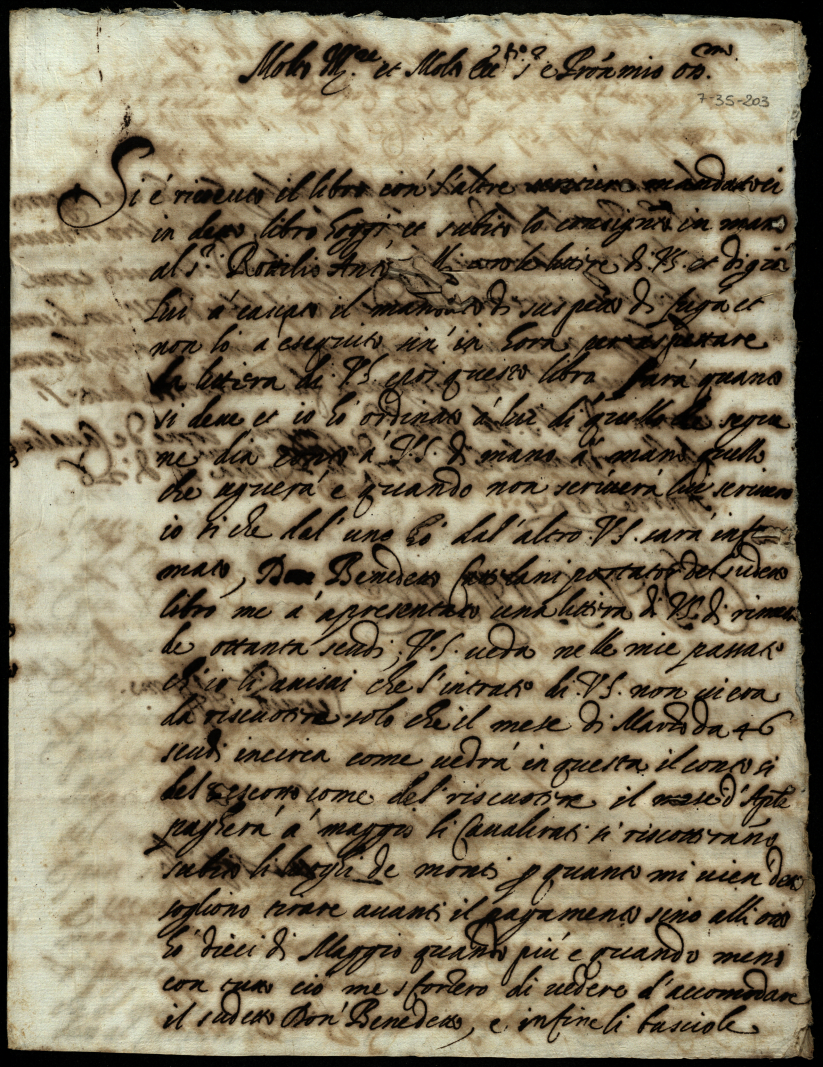 Molto Ill.re et Molto Ecc. S.r e Pron mio oss.mo
7-35-203
Si é riceuuto il libro con l'altre scritture mandateci
in detto libro hoggi et subito lo consignò in mano
al S.r Rottilio Ant. le littere di V.S. et di già
lui á cauato il mandato di suspetto di fuga et
non lo a eseguito sin' in hora per aspettare
la littera di V.S. e poi questo libro fará quanto
si deue et io hó ordinato á lui di quello che segue
ne dia conto á V.S. di mano á mano quello
che aguerá e quando non scriuerá lui scriuero
io si che dal' uno hó dal' altro V.S. sará infor
mato, Don Benedetto portator del sudetto
libro me á apresentato una littera di V.S. di rimes
de ottanta scudi V.S. ueda nelle mie passate
ch' io li auisai che l'intrate di V.S. non ui era
da riscuotere solo che il mese di Marzo da 46
scudi incirca come uedrá in questa il conto si
del rescotto come del riscuotere il mese d'Aprile
pagherá á maggio li Caualirati si riscottirano
subito li luoghi de monti p quanto mi uien detto
sogliono tirare auanti il pagamento sino alli otto
hó dieci di Maggio quando piú e quando meno
con tutto ció me sforzero di uedere d'accomodare
il sudetto Don Benedetto, e infine li bascio le